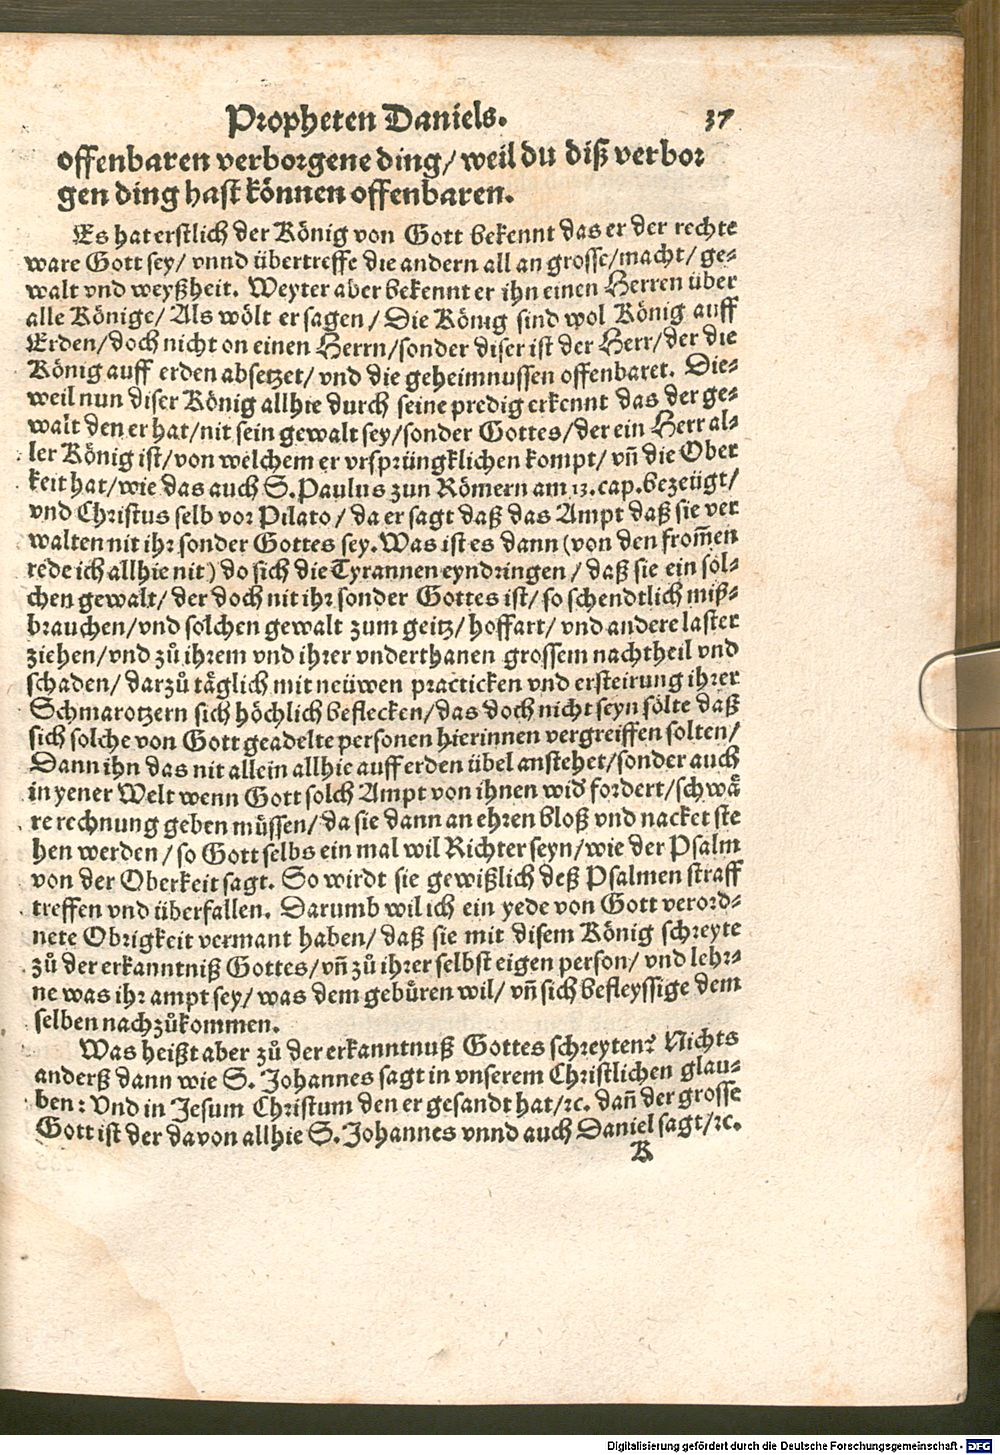 Propheten Daniels. 37
offenbaren verborgene ding/ weil du diß verbor
gen ding hast können offenbaren.
Es hat erstlich der König von Gott bekennt das er der rechte
ware Gott sey/ vnnd übertreffe die andern all an grosse/macht/ ge-
walt vnd weyßheit. Weyter aber bekennt er ihn einen Herren über
alle Könige/ Als wölt er sagen / Die König sind wol König auff
Erden/doch nicht on einen Herrn/sonder diser ist der Herr/der die
König auff erden absetzet/ vnd die geheimnussen offenbaret. Die-
weil nun diser König allhie durch seine predig erkennt das der ge-
walt den er hat/nit sein gewalt sey/sonder Gottes/der ein Herr al-
ler König ist/von welchem er vrsprüngklichen kompt/ vñ die Ober
keit hat/wie das auch S.Paulus zun Römern am 13.cap.bezeügt/
vnd Christus selb vor Pilato / da er sagt daß das Ampt daß sie ver
walten nit ihr sonder Gottes sey. Was ist es dann (von den from̃en
rede ich allhie nit) do sich die Tyrannen eyndringen / daß sie ein söl-
chen gewalt/ der doch nit ihr sonder Gottes ist/ so schendtlich miß-
brauchen/vnd solchen gewalt zum geitz/ hoffart/ vnd andere laster
ziehen/vnd zů ihrem vnd ihrer vnderthanen grossem nachtheil vnd
schaden/ darzů täglich mit neüwen practicken vnd ersteirung ihrer
Schmarotzern sich höchlich beflecken/das doch nicht seyn sölte daß
sich solche von Gott geadelte personen hierinnen vergreiffen solten/
Dann ihn das nit allein allhie auff erden übel anstehet/sonder auch
in yener Welt wenn Gott solch Ampt von ihnen wid fordert/schwä
re rechnung geben müssen/ da sie dann an ehren bloß vnd nacket ste
hen werden / so Gott selbs ein mal wil Richter seyn/wie der Psalm
von der Oberkeit sagt. So wirdt sie gewißlich deß Psalmen straff
treffen vnd überfallen. Darumb wil ich ein yede von Gott verord-
nete Obrigkeit vermant haben/ daß sie mit disem König schreyte
zů der erkanntniß Gottes/vñ zů ihrer selbst eigen person/ vnd lehr-
ne was ihr ampt sey/ was dem gebüren wil/ vñ sich befleyssige dem
selben nachzůkommen.
Was heißt aber zů der erkanntnuß Gottes schreyten? Nichts
anderß dann wie S. Johannes sagt in vnserem Christlichen glau-
ben: Vnd in Jesum Christum den er gesandt hat/ꝛc. dañ der grosse
Gott ist der davon allhie S. Johannes vnnd auch Daniel sagt/ꝛc.
K
Digitalisierung gefördert durch die Deutsche Forschungsgemeinschaft - DFG